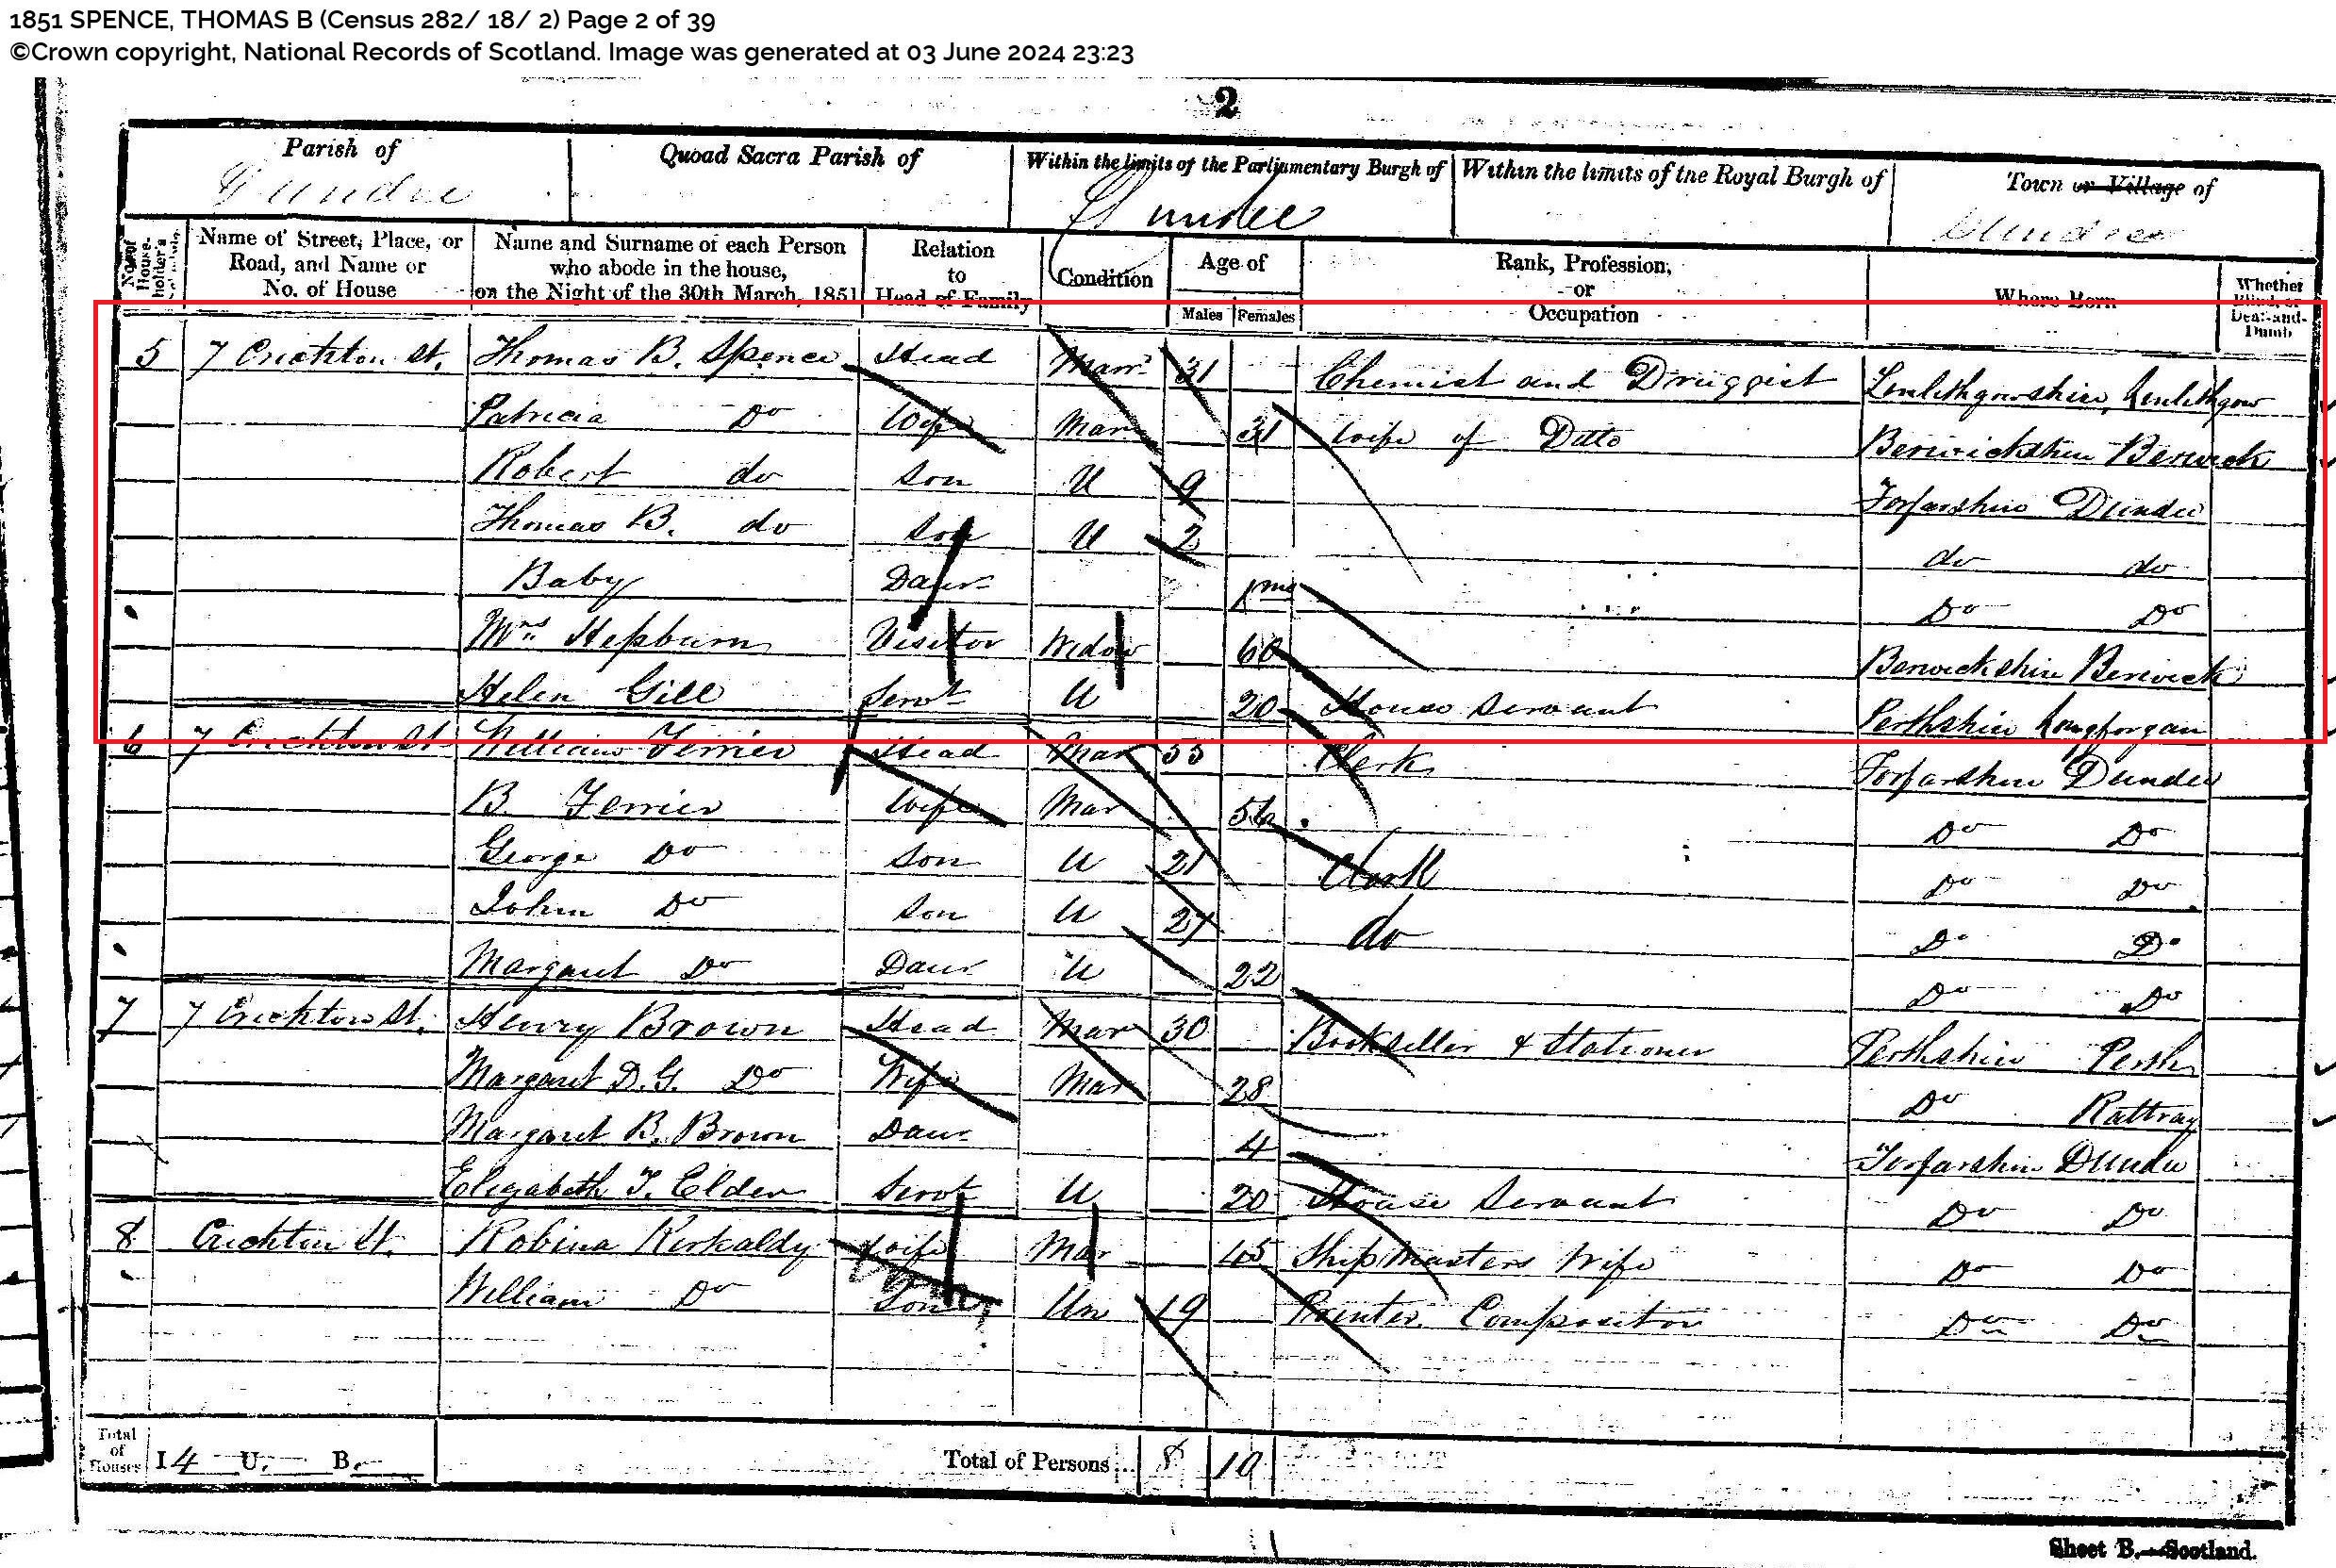 1851 SPENCE, THOMAS B (Census 282/ 18/ 2) Page 2 of 39
©Crown copyright, National Records of Scotland. Image was generated at 03 June 2024 23:23
2
Parish of Quoad Sacra Parish of Within the limits of the Parliamentary Burgh of Within the limits of the Royal Burgh of Town or Village of
Dundee Dundee Dundee
No. of House-holder's Name of Street, Place, or Road, and Name or No. of House Name and Surname of each Person who abode in the house, on the Night of the 30th March, 1851 Relation to Head of Family Condition Age of Males Females Rank, Profession, or Occupation Where Born Whether Blind, or Deaf-and-Dumb
5 7 Crichton St. Thomas B. Spence Head Marr. 31 Chemist and Druggist Linlithgowshire, Linlithgow
Patricia Do Wife Mar 31 Wife of Ditto Berwickshire Berwick
Robert do Son U 9 Forfarshire Dundee
Thomas B. do Son U 2 do do
Baby Daur 1 mo Do Do
Mrs Hepburn Visitor Widow 60 Berwickshire Berwick
Helen Gill Servt U 20 House Servant Perthshire Longforgan
6 7 Crichton St William Ferrier Head Mar 55 Clerk Forfarshire Dundee
B. Ferrier Wife Mar 56 Do Do
George Do Son U 21 Clerk Do Do
John Do Son U 27 do Do Do
Margaret Do Daur U 22 Do Do
7 7 Crichton St. Henry Brown Head Mar 30 Bookseller & Stationer Perthshire Perth
Margaret D. G. Do Wife Mar 28 Do Rattray
Margaret B. Brown Daur 4 Forfarshire Dundee
Elizabeth T. Elder Servt U 20 House Servant Do Do
8 Crichton St. Robina Kirkaldy Wife Mar 45 Ship Masters Wife Do Do
William Do Son Un 19 Printer Compositor Do Do
Total of Houses 14 U. B. Total of Persons 8 10
Sheet B.—Scotland.